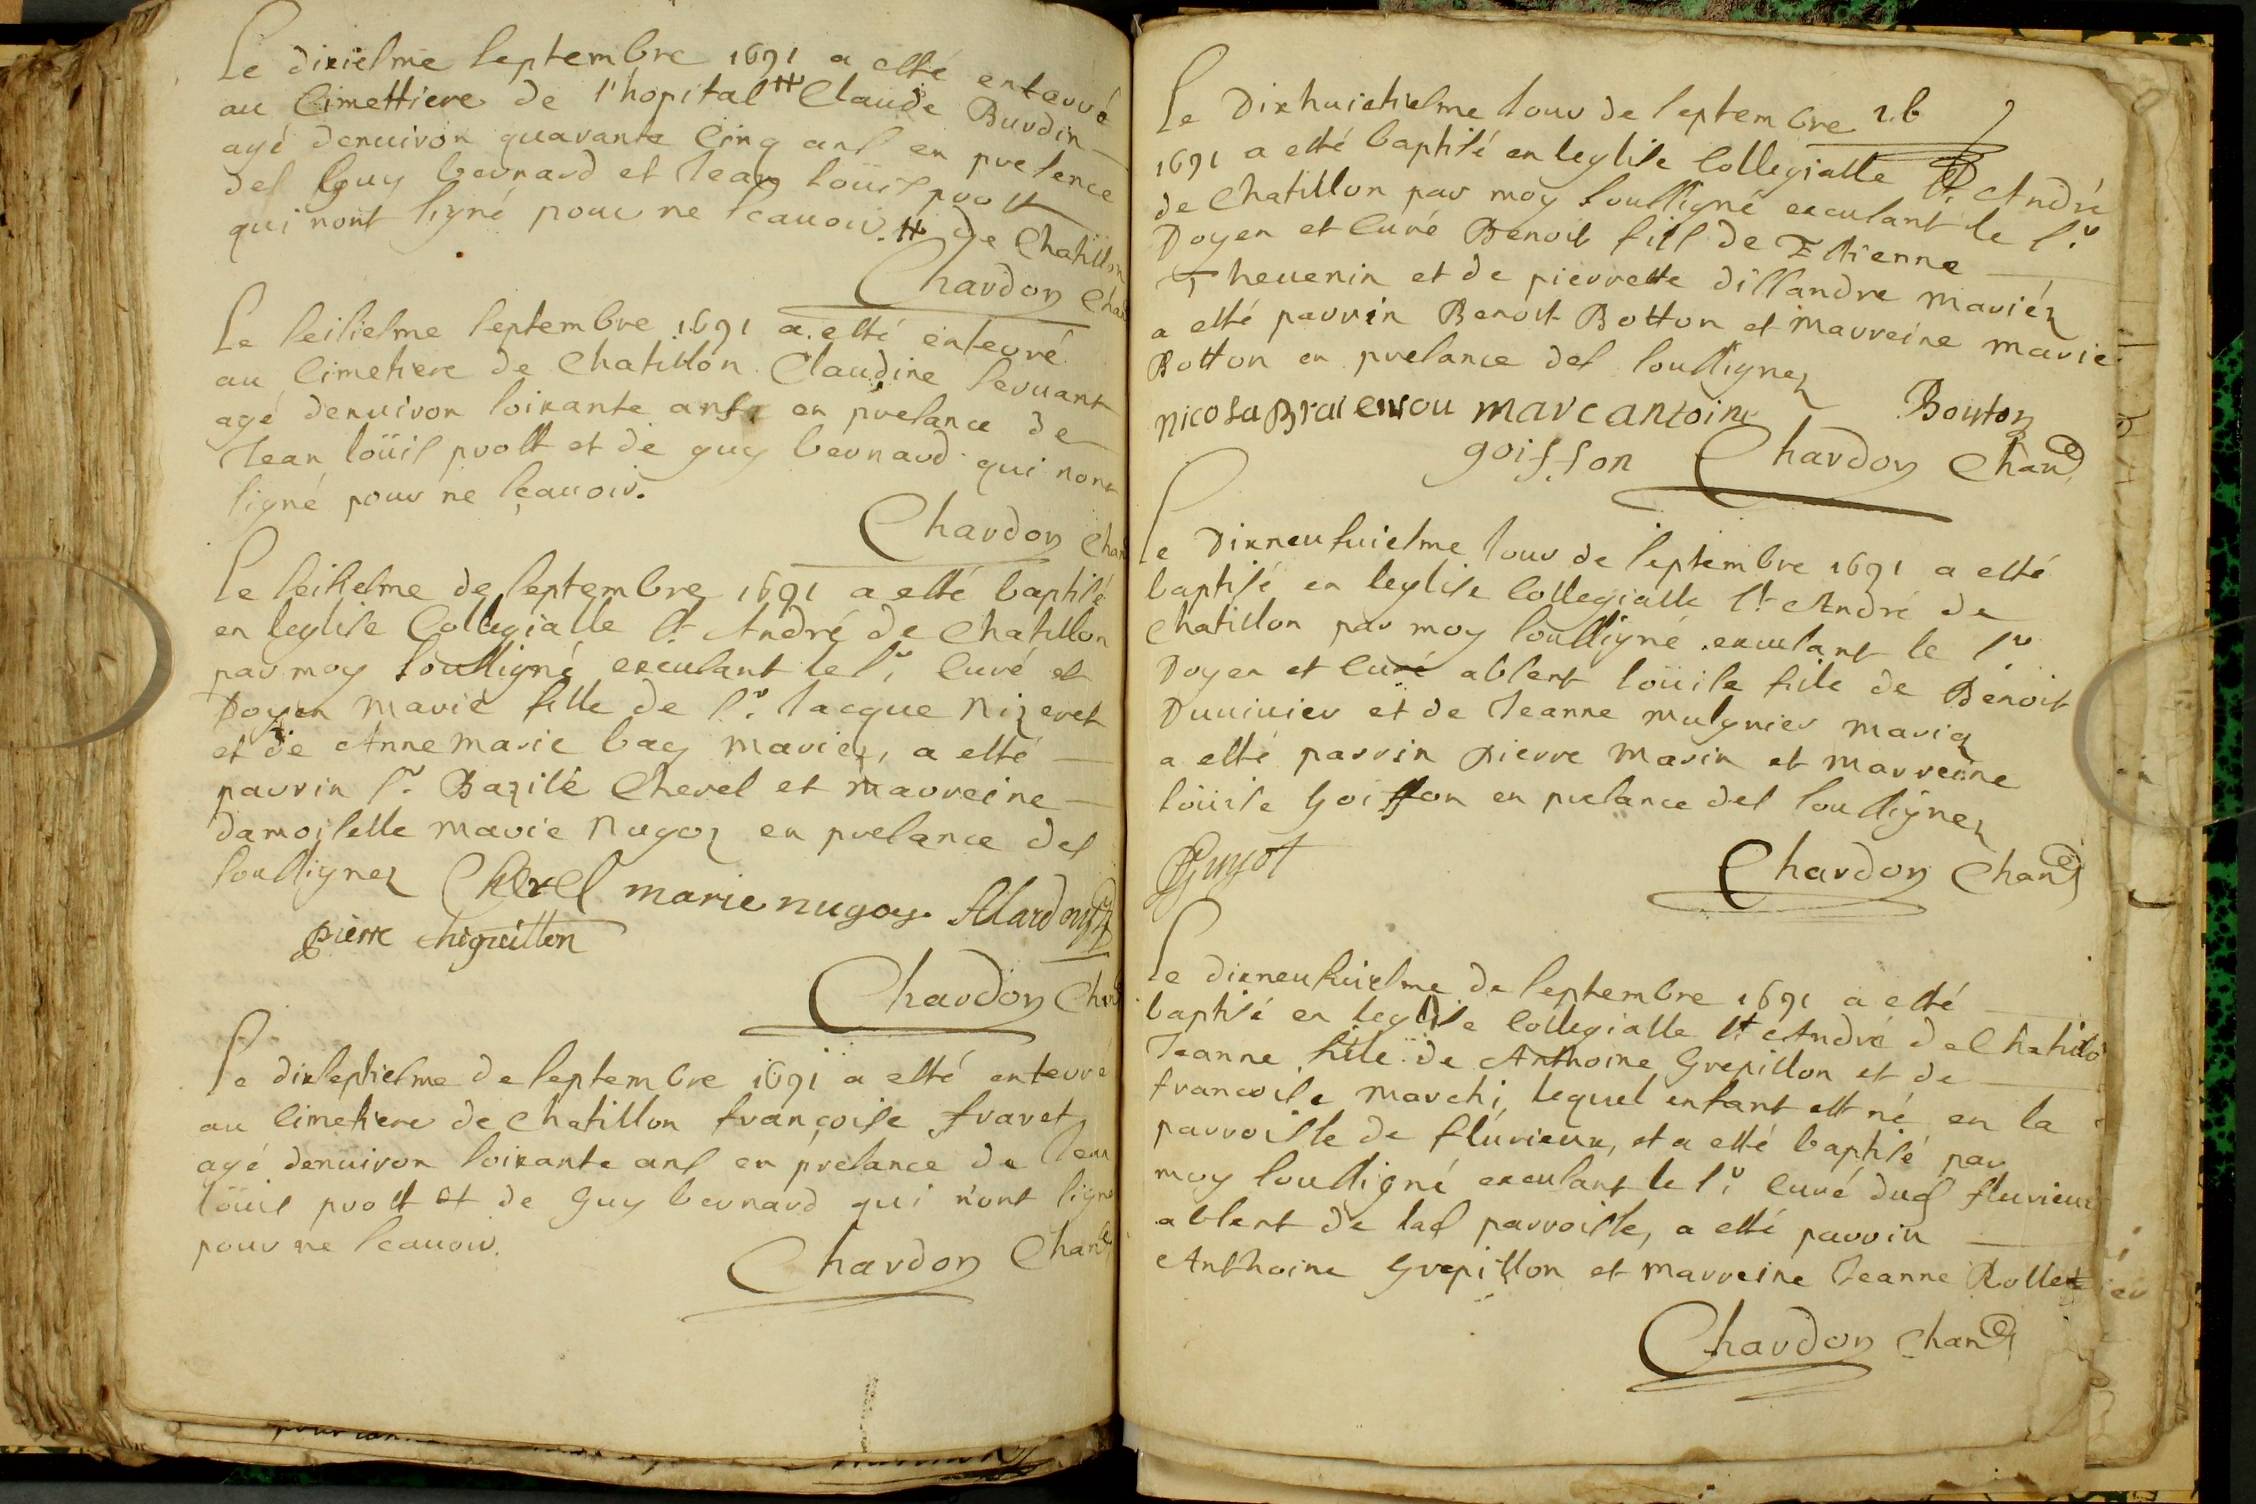 Le dixiesme septembre 1691 a esté enterré
au Cimettiere de l'hopital # Claude Burdin
agé denuiron quarante cinq ans en presence
des guy bernard et Jean loüis prost
qui nont signé pour ne scauoir. # de Chatillon
Chardon Cha
Le seisiesme septembre 1691 a esté enterré
au Cimetiere de Chatillon Claudine seruant
agé denuiron soixante ans en presance de
Jean loüis prost et de guy bernard qui nont
signé pour ne sçauoir.
Chardon Chan
Le seisiesme de septembre 1691 a esté baptisé
en leglise Collegialle St André de Chatillon
par moy soussigné excusant le sr. Curé et
Doyen marie fille de sr. Jacque Nizeret
et de Anne marie bag mariez, a esté
parrin sr. Bazile Cherel et marreine
damoiselle marie Nugoz en presance des
soussignez Cherel marie nugoz
pierre
Chardon Chan
Le dixseptiesme de septembre 1691 a esté enterré
au Cimetiere de Chatillon françoise fravet
agé denuiron soixante ans en presance de Jean
loüis prost et de guy bernard qui n'ont signé
pour ne scauoir.
Chardon Chan
Le Dixhuictiesme Jour de septembre
1691 a esté baptisé en leglise Collegialle St André
de Chatillon par moy soussigné excusant le sr.
Doyen et Curé Benoit fils de Estienne
Theuenin et de pierrette dissandre mariéz
a esté parrin Benoit Botton et marreine marie
Botton en presance des soussignez
marc antoine Bouton
goisson Chardon Chan
Le Dixneufuiesme Jour de septembre 1691 a esté
baptisé en leglise Collegialle St André de
Chatillon par moy soussigné excusant le sr
Doyen et Curé absent loüise fille de Benoit
Duuiuier et de Jeanne mulgnier mariez
a esté parrin pierre marin et marreine
loüise Goisson en presance des soussignez
Guyot
Chardon Chan
Le dixneufuiesme de septembre 1691 a esté
baptisé en leglise Collegialle St André de Chatillo
Jeanne fille de Anthoine Grepillon et de
francoise marchi, lequel enfant est né en la
parroisse de flurieux, et a esté baptisé par
moy soussigné excusant le sr. Curé dud flurieux
absent de lad parroisse, a esté parrin
Anthoine Grepillon et marreine Jeanne Rollet
Chardon Chan